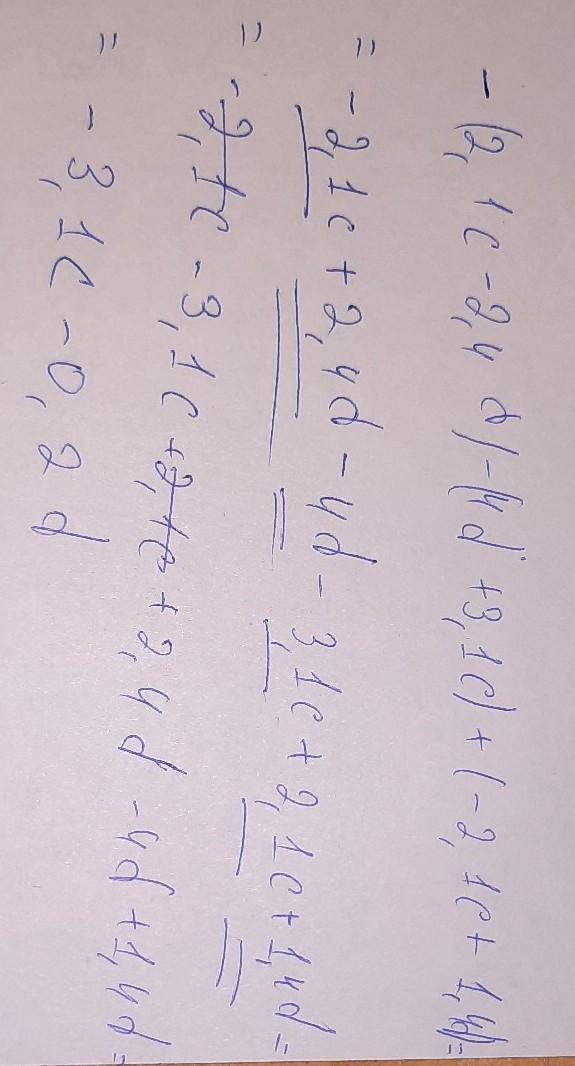 -(2,1c-2,4d)-(4d+3,1c)+(-2,1c+1,4d)=
=-2,1c+2,4d-4d-3,1c+2,1c+1,4d=
=-2,1c-3,1c+2,1c+2,4d-4d+1,4d=
=-3,1c-0,2d